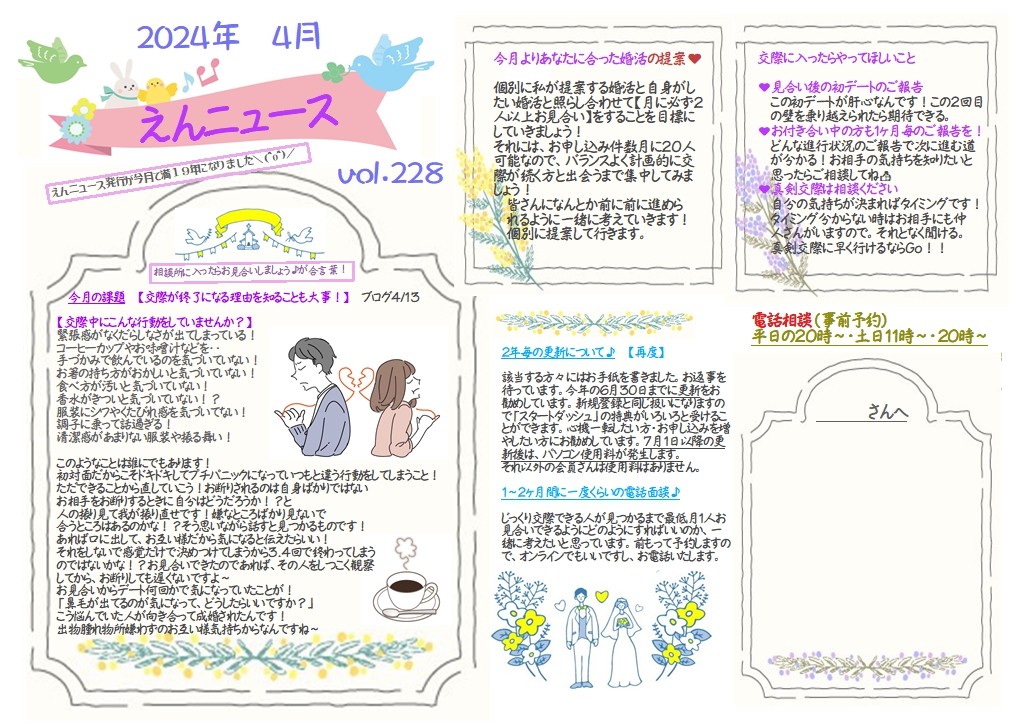 2024年 4月
えんニュース
えんニュース発行が今日で満19年になりました＼(^o^)／
vol.228
相談所に入ったらお見合いしましょう♪が合言葉！
今月の課題 【交際が終了になる理由を知ることも大事！】 ブログ4/13
【交際中にこんな行動をしていませんか？】
緊張感がなくだらしなさが出てしまっている！
コーヒーカップやお味噌汁などを・・
手づかみで飲んでいるのを気づいていない！
お箸の持ち方がおかしいと気づいていない！
食べ方が汚いと気づいていない！
香水がきついと気づいていない！？
服装にシワやくたびれ感を気づいてない！
調子に乗って話過ぎる！
清潔感があまりない服装や振る舞い！
このようなことは誰にでもあります！
初対面だからこそドキドキしてプチパニックになっていつもと違う行動をしてしまうこと！
ただできることから直していこう！お断りされるのは自身ばかりではない
お相手をお断りするときに自分はどうだろうか！？と
人の振り見て我が振り直せです！嫌なところばかり見ないで
合うところはあるのかな！？そう思いながら話すと見つかるものです！
あれば口に出して、お互い様だから気になると伝えたらいい！
それをしないで感覚だけで決めつけてしまうから3.4回で終わってしまう
のではないかな！？お見合いできたのであれば、その人をしつこく観察
してから、お断りしても遅くないですよ～
お見合いからデート何回かで気になっていたことが！
「鼻毛が出てるのが気になって、どうしたらいいですか？」
こう悩んでいた人が向き合って成婚されたんです！
出物腫れ物所嫌わずのお互い様気持ちからなんですね～
今月よりあなたに合った婚活の提案♥
個別に私が提案する婚活と自身がし
たい婚活と照らし合わせて【月に必ず2
人以上お見合い】をすることを目標に
していきましょう！
それには、お申し込み件数月に20人
可能なので、バランスよく計画的に交
際が続く方と出会うまで集中してみま
しょう！
皆さんになんとか前に前に進めら
れるように一緒に考えていきます！
個別に提案して行きます。
交際に入ったらやってほしいこと
♥見合い後の初デートのご報告
この初デートが肝心なんです！この2回目
の壁を乗り越えられたら期待できる。
♥お付き合い中の方も1ヶ月毎のご報告を！
どんな進行状況のご報告で次に進む道
が分かる！お相手の気持ちを知りたいと
思ったらご相談してね
♥真剣交際は相談ください
自分の気持ちが決まればタイミングです！
タイミング分からない時はお相手にも仲
人さんがいますので。それとなく聞ける。
真剣交際に早く行けるならGo！！
2年毎の更新について♪ 【再度】
該当する方々にはお手紙を書きました。お返事を
待っています。今年の6月30日までに更新をお
勧めしています。新規登録と同じ扱いになりますの
で「スタートダッシュ」の特典がいろいろと受けるこ
とができます。心機一転したい方・お申し込みを増
やしたい方にお勧めしています。7月1日以降の更
新後は、パソコン使用料が発生します。
それ以外の会員さんは使用料はありません。
1~2ヶ月間に一度くらいの電話面談♪
じっくり交際できる人が見つかるまで最低月1人お
見合いできるようにどのようにすればいいのか、一
緒に考えたいと思っています。前もって予約しますの
で、オンラインでもいいですし、お電話いたします。
電話相談（事前予約）
平日の20時～・土日11時～・20時～
さんへ